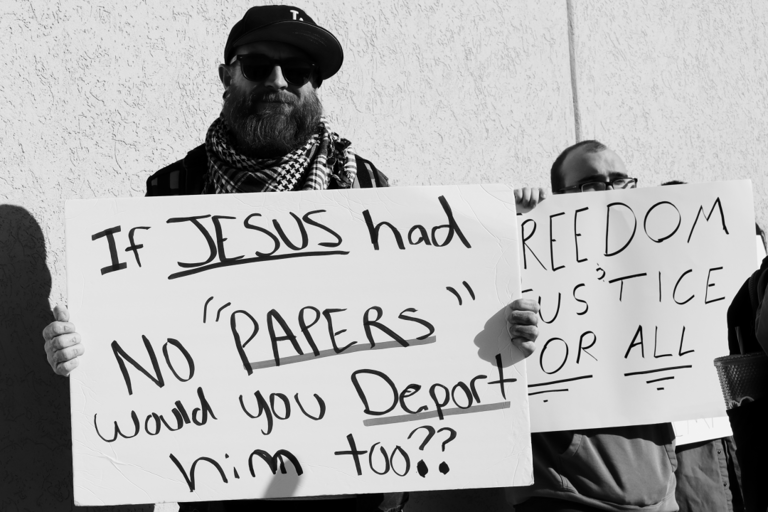 T.
If JESUS had
No "PAPERS"
would you Deport
him too??
REEDOM
US'TICE
OR ALL